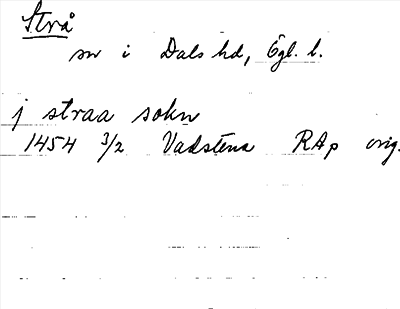 Strå
sn i Dals hd, Ögl. l.
j straa sokn
1454 3/2 Vadstena RAp orig.